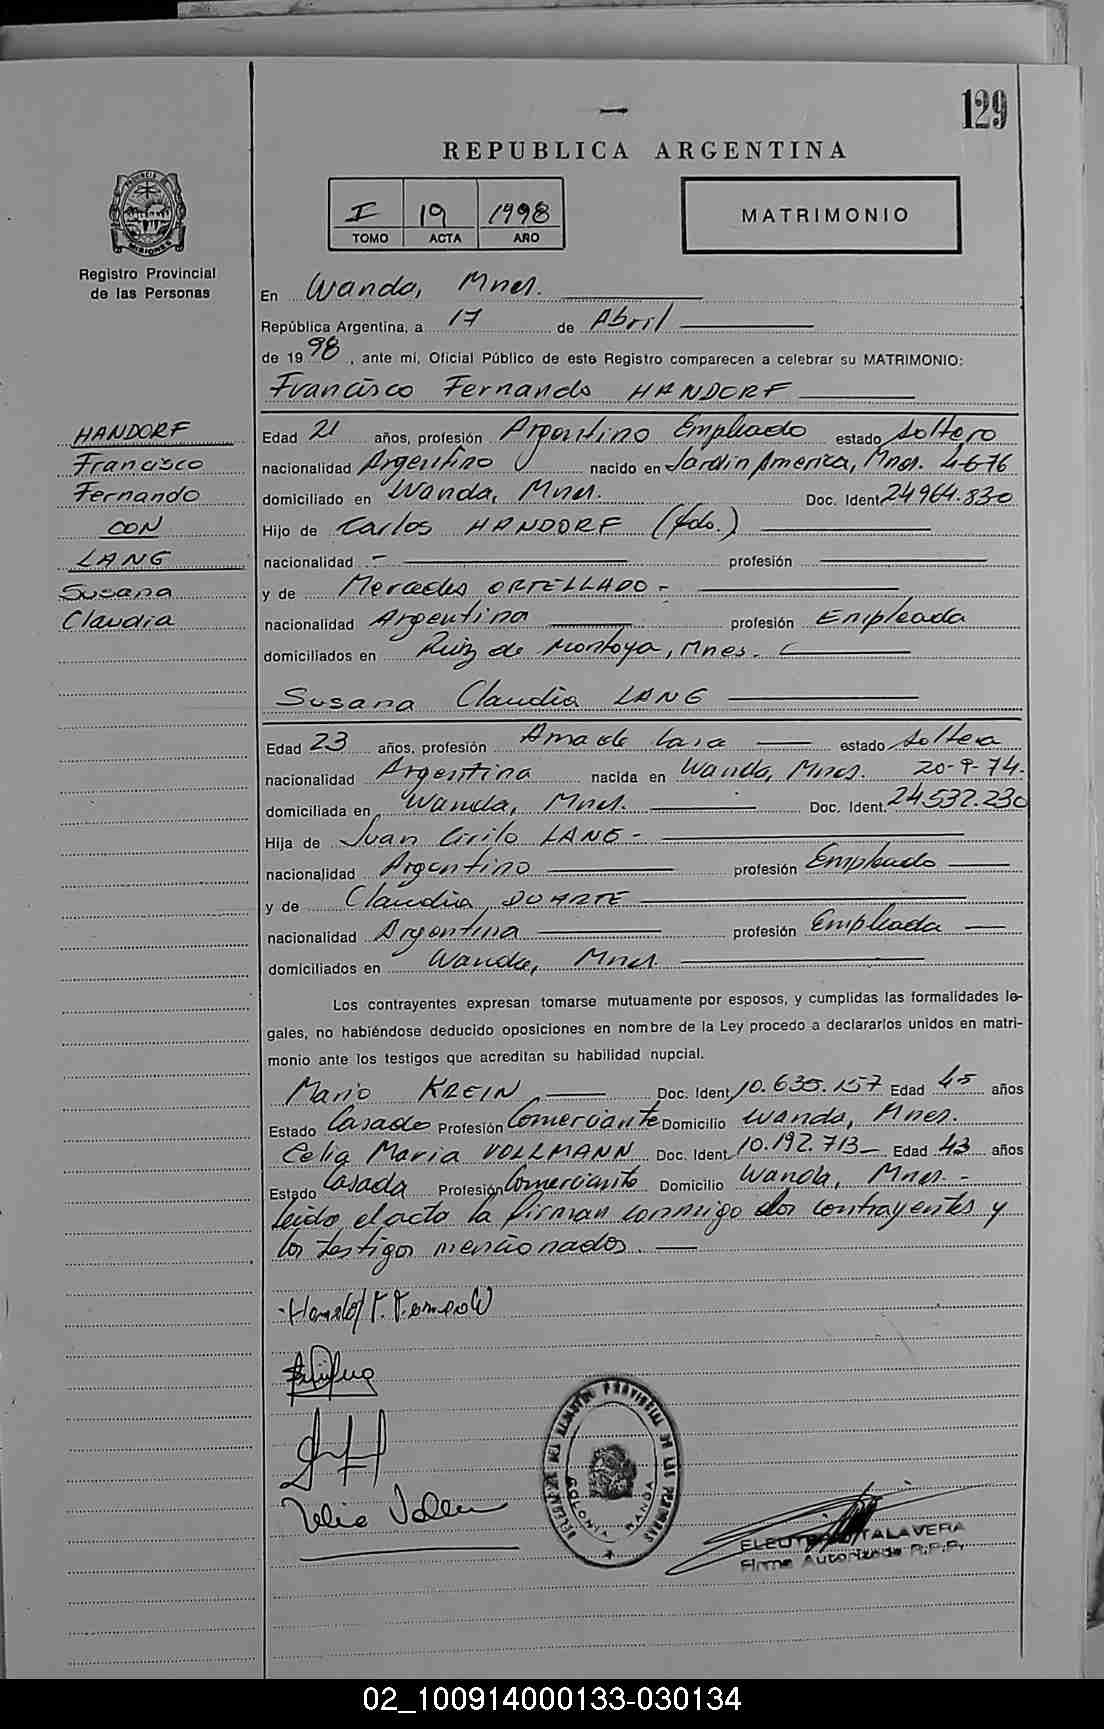 129
REPUBLICA ARGENTINA
I 19 1998
TOMO ACTA AÑO
MATRIMONIO
PROVINCIA DE MISIONES
Registro Provincial
de las Personas
En Wanda, Mnes.
República Argentina, a 17 de Abril
de 1998, ante mí, Oficial Público de este Registro comparecen a celebrar su MATRIMONIO:
Francisco Fernando HANDORF
HANDORF
Francisco
Fernando
CON
LANG
Susana
Claudia
Edad 21 años, profesión Argentino Empleado estado soltero
nacionalidad Argentino nacido en Jardin America, Mnes. 4-6-76
domiciliado en Wanda, Mnes. Doc. Ident. 24964.830
Hijo de Carlos HANDORF (fdo.)
nacionalidad - profesión
y de Mercedes ORTELLADO -
nacionalidad Argentina profesión Empleada
domiciliados en Ruiz de Montoya, Mnes.
Susana Claudia LANG
Edad 23 años, profesión Ama de Casa estado soltera
nacionalidad Argentina nacida en Wanda, Mnes. 20-9-74.
domiciliada en Wanda, Mnes. Doc. Ident. 24.532.230
Hija de Juan Cirilo LANG -
nacionalidad Argentino profesión Empleado
y de Claudia DUARTE
nacionalidad Argentina profesión Empleada
domiciliados en Wanda, Mnes
Los contrayentes expresan tomarse mutuamente por esposos, y cumplidas las formalidades le-
gales, no habiéndose deducido oposiciones en nombre de la Ley procedo a declararlos unidos en matri-
monio ante los testigos que acreditan su habilidad nupcial.
Mario KREIN Doc. Ident. 10.635.157 Edad 45 años
Estado Casado Profesión Comerciante Domicilio Wanda, Mnes.
Celia Maria VOLLMANN Doc. Ident. 10.192.713- Edad 43 años
Estado Casada Profesión Comerciante Domicilio Wanda, Mnes. -
Leido el acto la firman conmigo los contrayentes y
los testigos mencionados.
COLONIA WANDA
TALAVERA
Firma Autorizada R.P.P.
02_100914000133-030134